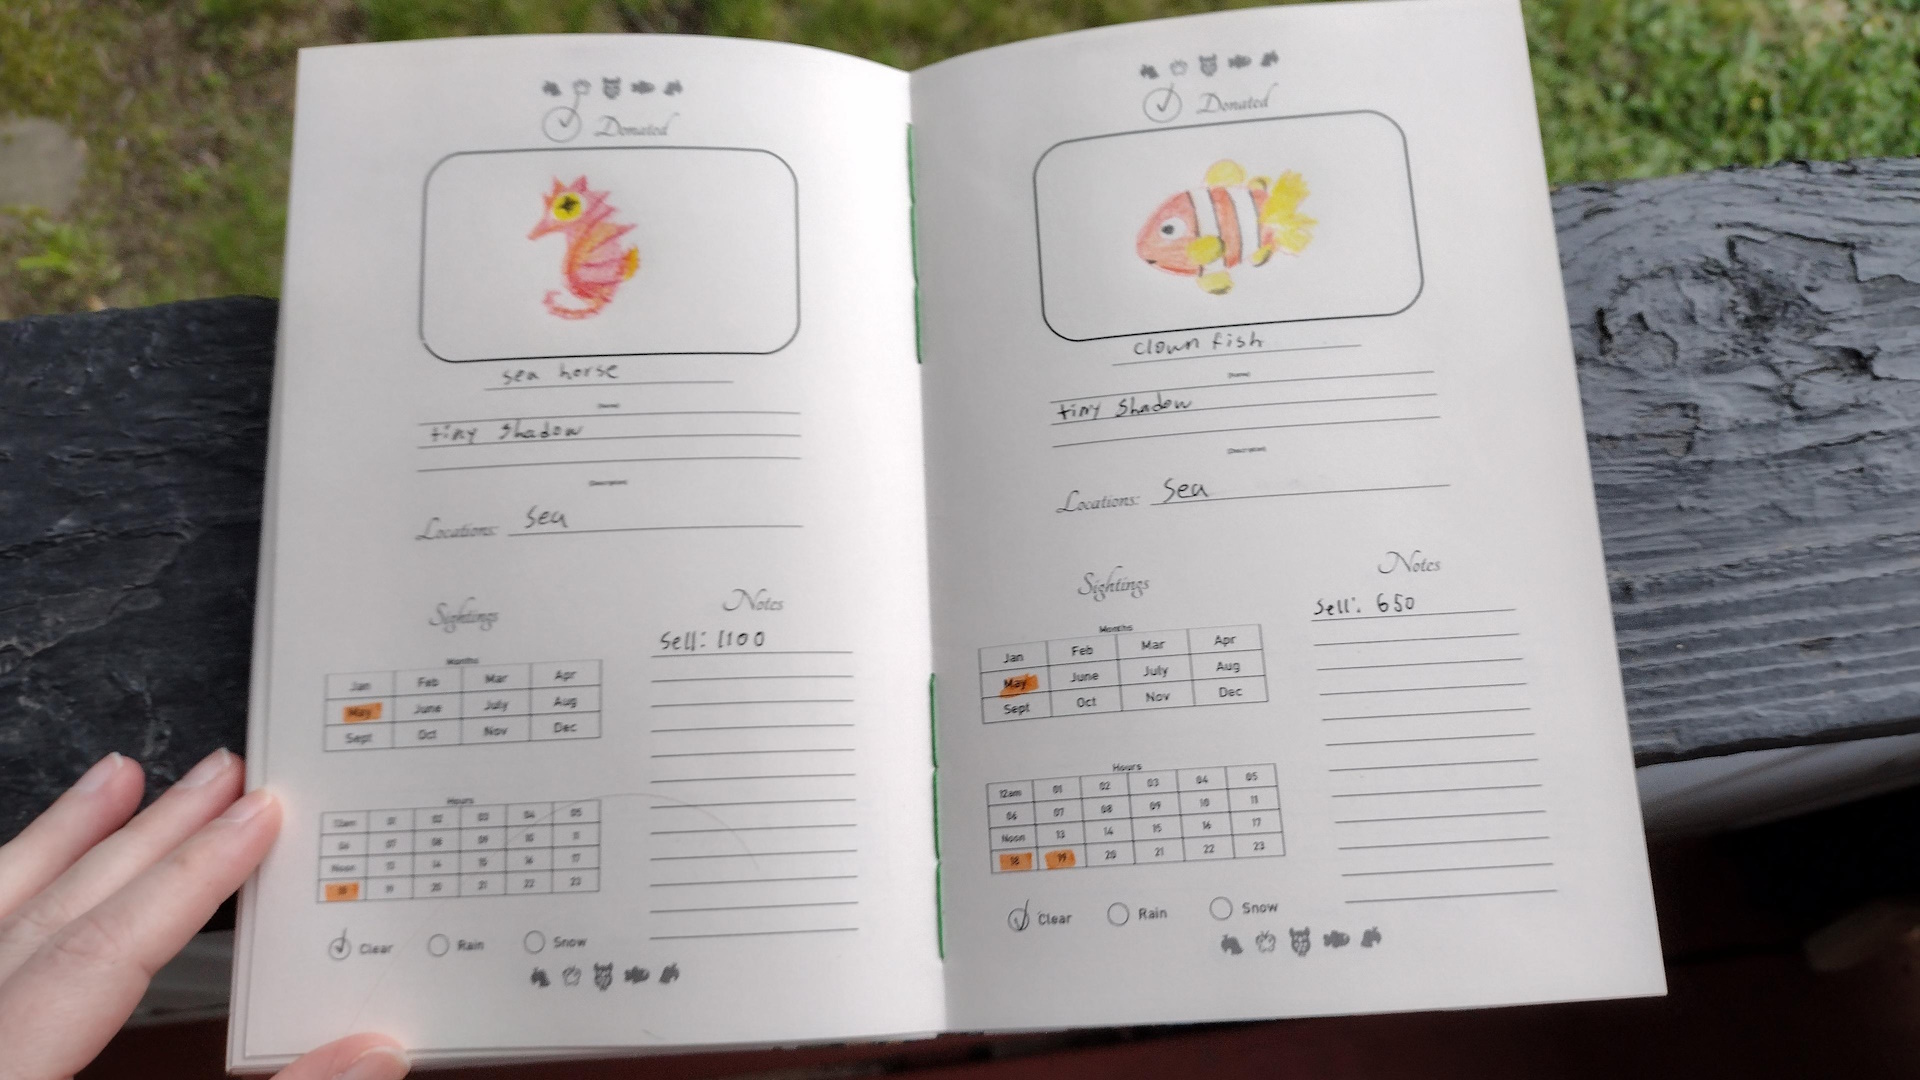 Donated
sea horse
(Name)
tiny shadow
(Description)
Locations: Sea
Sightings
Months
Jan Feb Mar Apr
May June July Aug
Sept Oct Nov Dec
Hours
12am 01 02 03 04 05
06 07 08 09 10 11
Noon 13 14 15 16 17
18 19 20 21 22 23
Clear Rain Snow
Notes
Sell: 1100
Donated
clown fish
(Name)
tiny Shadow
(Description)
Locations: Sea
Sightings
Months
Jan Feb Mar Apr
May June July Aug
Sept Oct Nov Dec
Hours
12am 01 02 03 04 05
06 07 08 09 10 11
Noon 13 14 15 16 17
18 19 20 21 22 23
Clear Rain Snow
Notes
Sell: 650